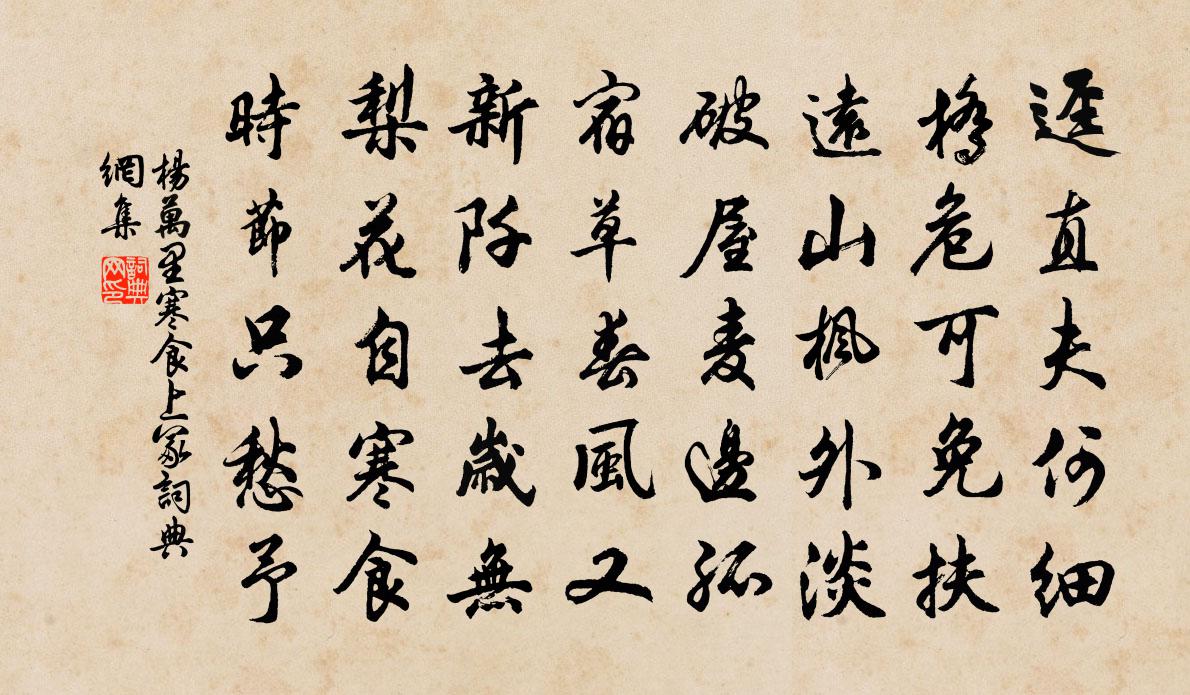 逕直夫何細
橋危可免扶
遠山楓外淡
破屋麥邊孤
宿草春風又
新阡去歲無
梨花自寒食
時節只愁予
楊萬里寒食上冢詞典
網集
詞典
网印